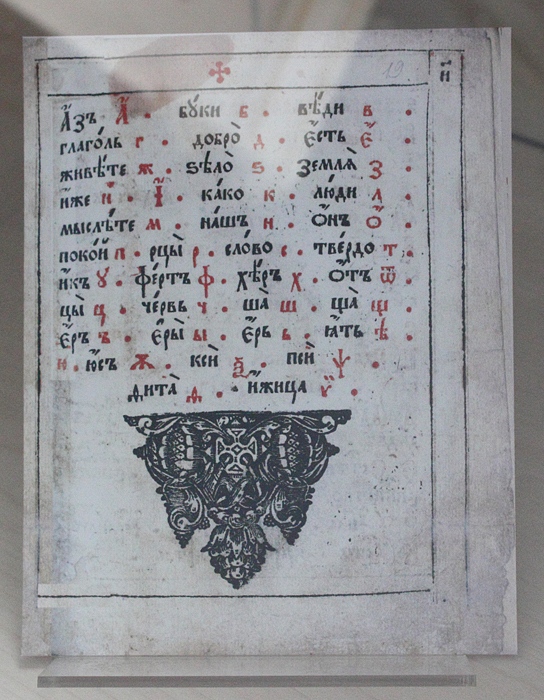 19
и҃і
А҆́зъ А҆́ . бꙋ́ки б . вѣ́ди в .
глаго́ль г . добро̀ д . є҆́сть є҆́ .
живѣ́те ж . ѕѣлѡ̀ ѕ . Земля̀ З .
и҆́же и҆ . І҆ . ка́ко к . лю́ди л
мыслѣ́те м . на́шъ н . О҆́нъ О҆́ .
поко́й п . рцы̀ р . сло́во с . тве́рдо т .
и҆́къ ꙋ . фе́ртъ ф . хѣ́ръ х . Ѿтъ ѿ .
цы̀ ц . че́рвь ч . ша̀ ш . ща̀ щ .
є҆́ръ ъ . є҆ры̀ ы . є҆́рь ь . ꙗ҆́ть ѣ .
ю . ю҆́съ ѫ . ксѝ ѯ . псѝ ѱ .
ѳита̀ ѳ . и҆́жица ѷ .